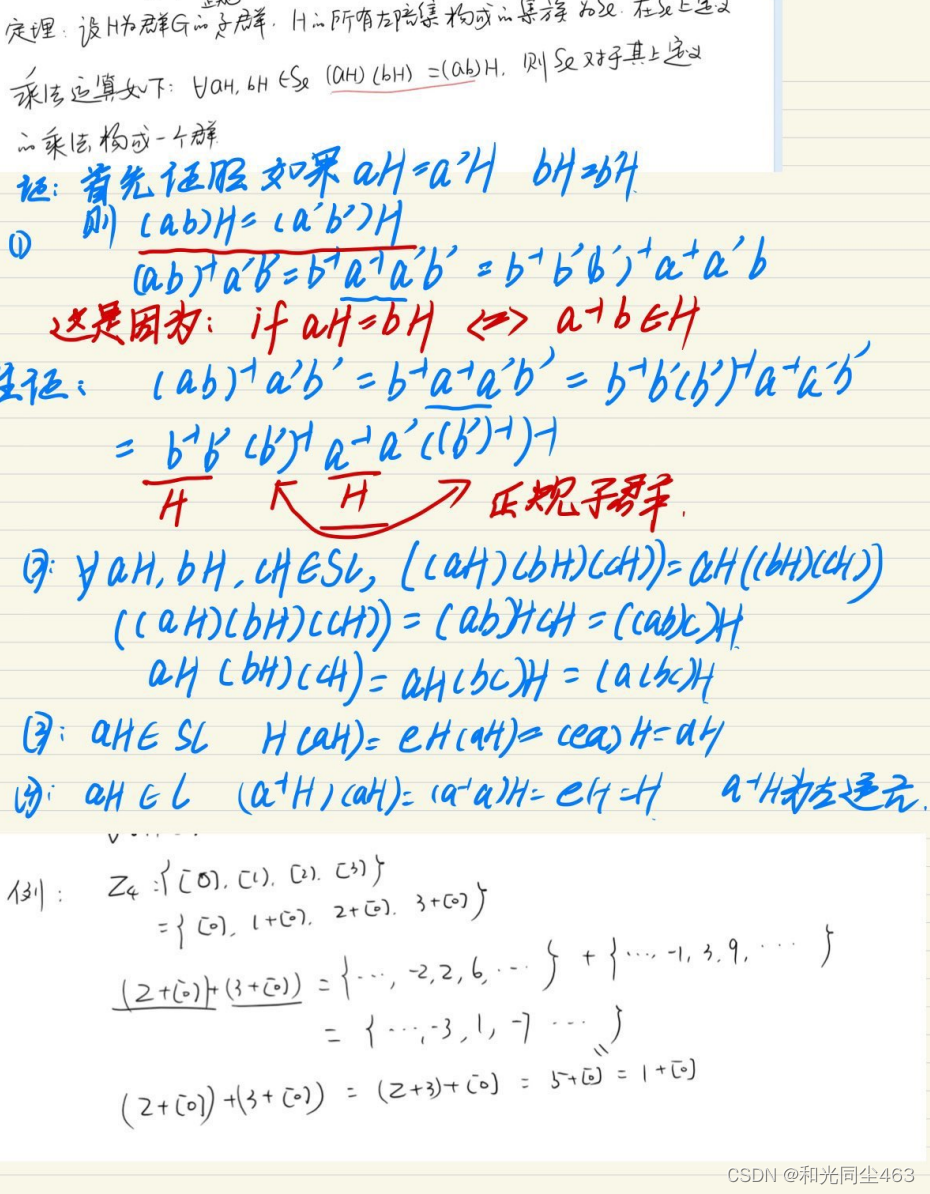 正规
定理：设H为群G的子群. H的所有左陪集构成的集族为Sl. 在Sl上定义
乘法运算如下：∀aH, bH∈Sl (aH)(bH)=(ab)H. 则Sl对于其上定义
的乘法构成一个群
证：首先证明 如果 aH=a'H bH=b'H
① 则 (ab)H=(a'b')H
(ab)⁻¹a'b'=b⁻¹a⁻¹a'b' = b⁻¹b'(b')⁻¹a⁻¹a'b
这是因为：if aH=bH <=> a⁻¹b∈H
证： (ab)⁻¹a'b' = b⁻¹a⁻¹a'b' = b⁻¹b'(b')⁻¹a⁻¹a'b'
= b⁻¹b'(b')⁻¹a⁻¹a'((b')⁻¹)⁻¹
H H 正规子群.
②: ∀aH, bH, cH∈Sl, ((aH)(bH)(cH))=aH((bH)(cH))
((aH)(bH)(cH)) = (ab)HcH = ((ab)c)H
aH(bH)(cH) = aH(bc)H = (a(bc)H
③: aH∈Sl H(aH)=eH(aH)=(ea)H=aH
④: aH∈l (a⁻¹H)(aH)=(a⁻¹a)H=eH=H a⁻¹H为左逆元.
例： Z₄:{[0], [1], [2], [3]}
={[0], 1+[0], 2+[0], 3+[0]}
(2+[0])+(3+[0]) = {…, -2, 2, 6, …} + {…, -1, 3, 9, …}
= {…, -3, 1, -7 …}
(2+[0])+(3+[0]) = (2+3)+[0] = 5+[0] = 1+[0]
CSDN @和光同尘463